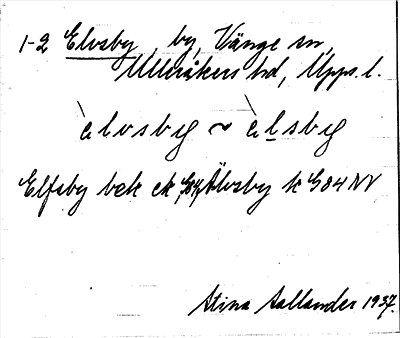 1-2 Elvsby, by, Vänge sn,
Ulleråkers hd, Upps. l.
`elvsby ~ `elsby
Elfsby bek ek Älvsby k G84 NV
Stina Sallander 1937.